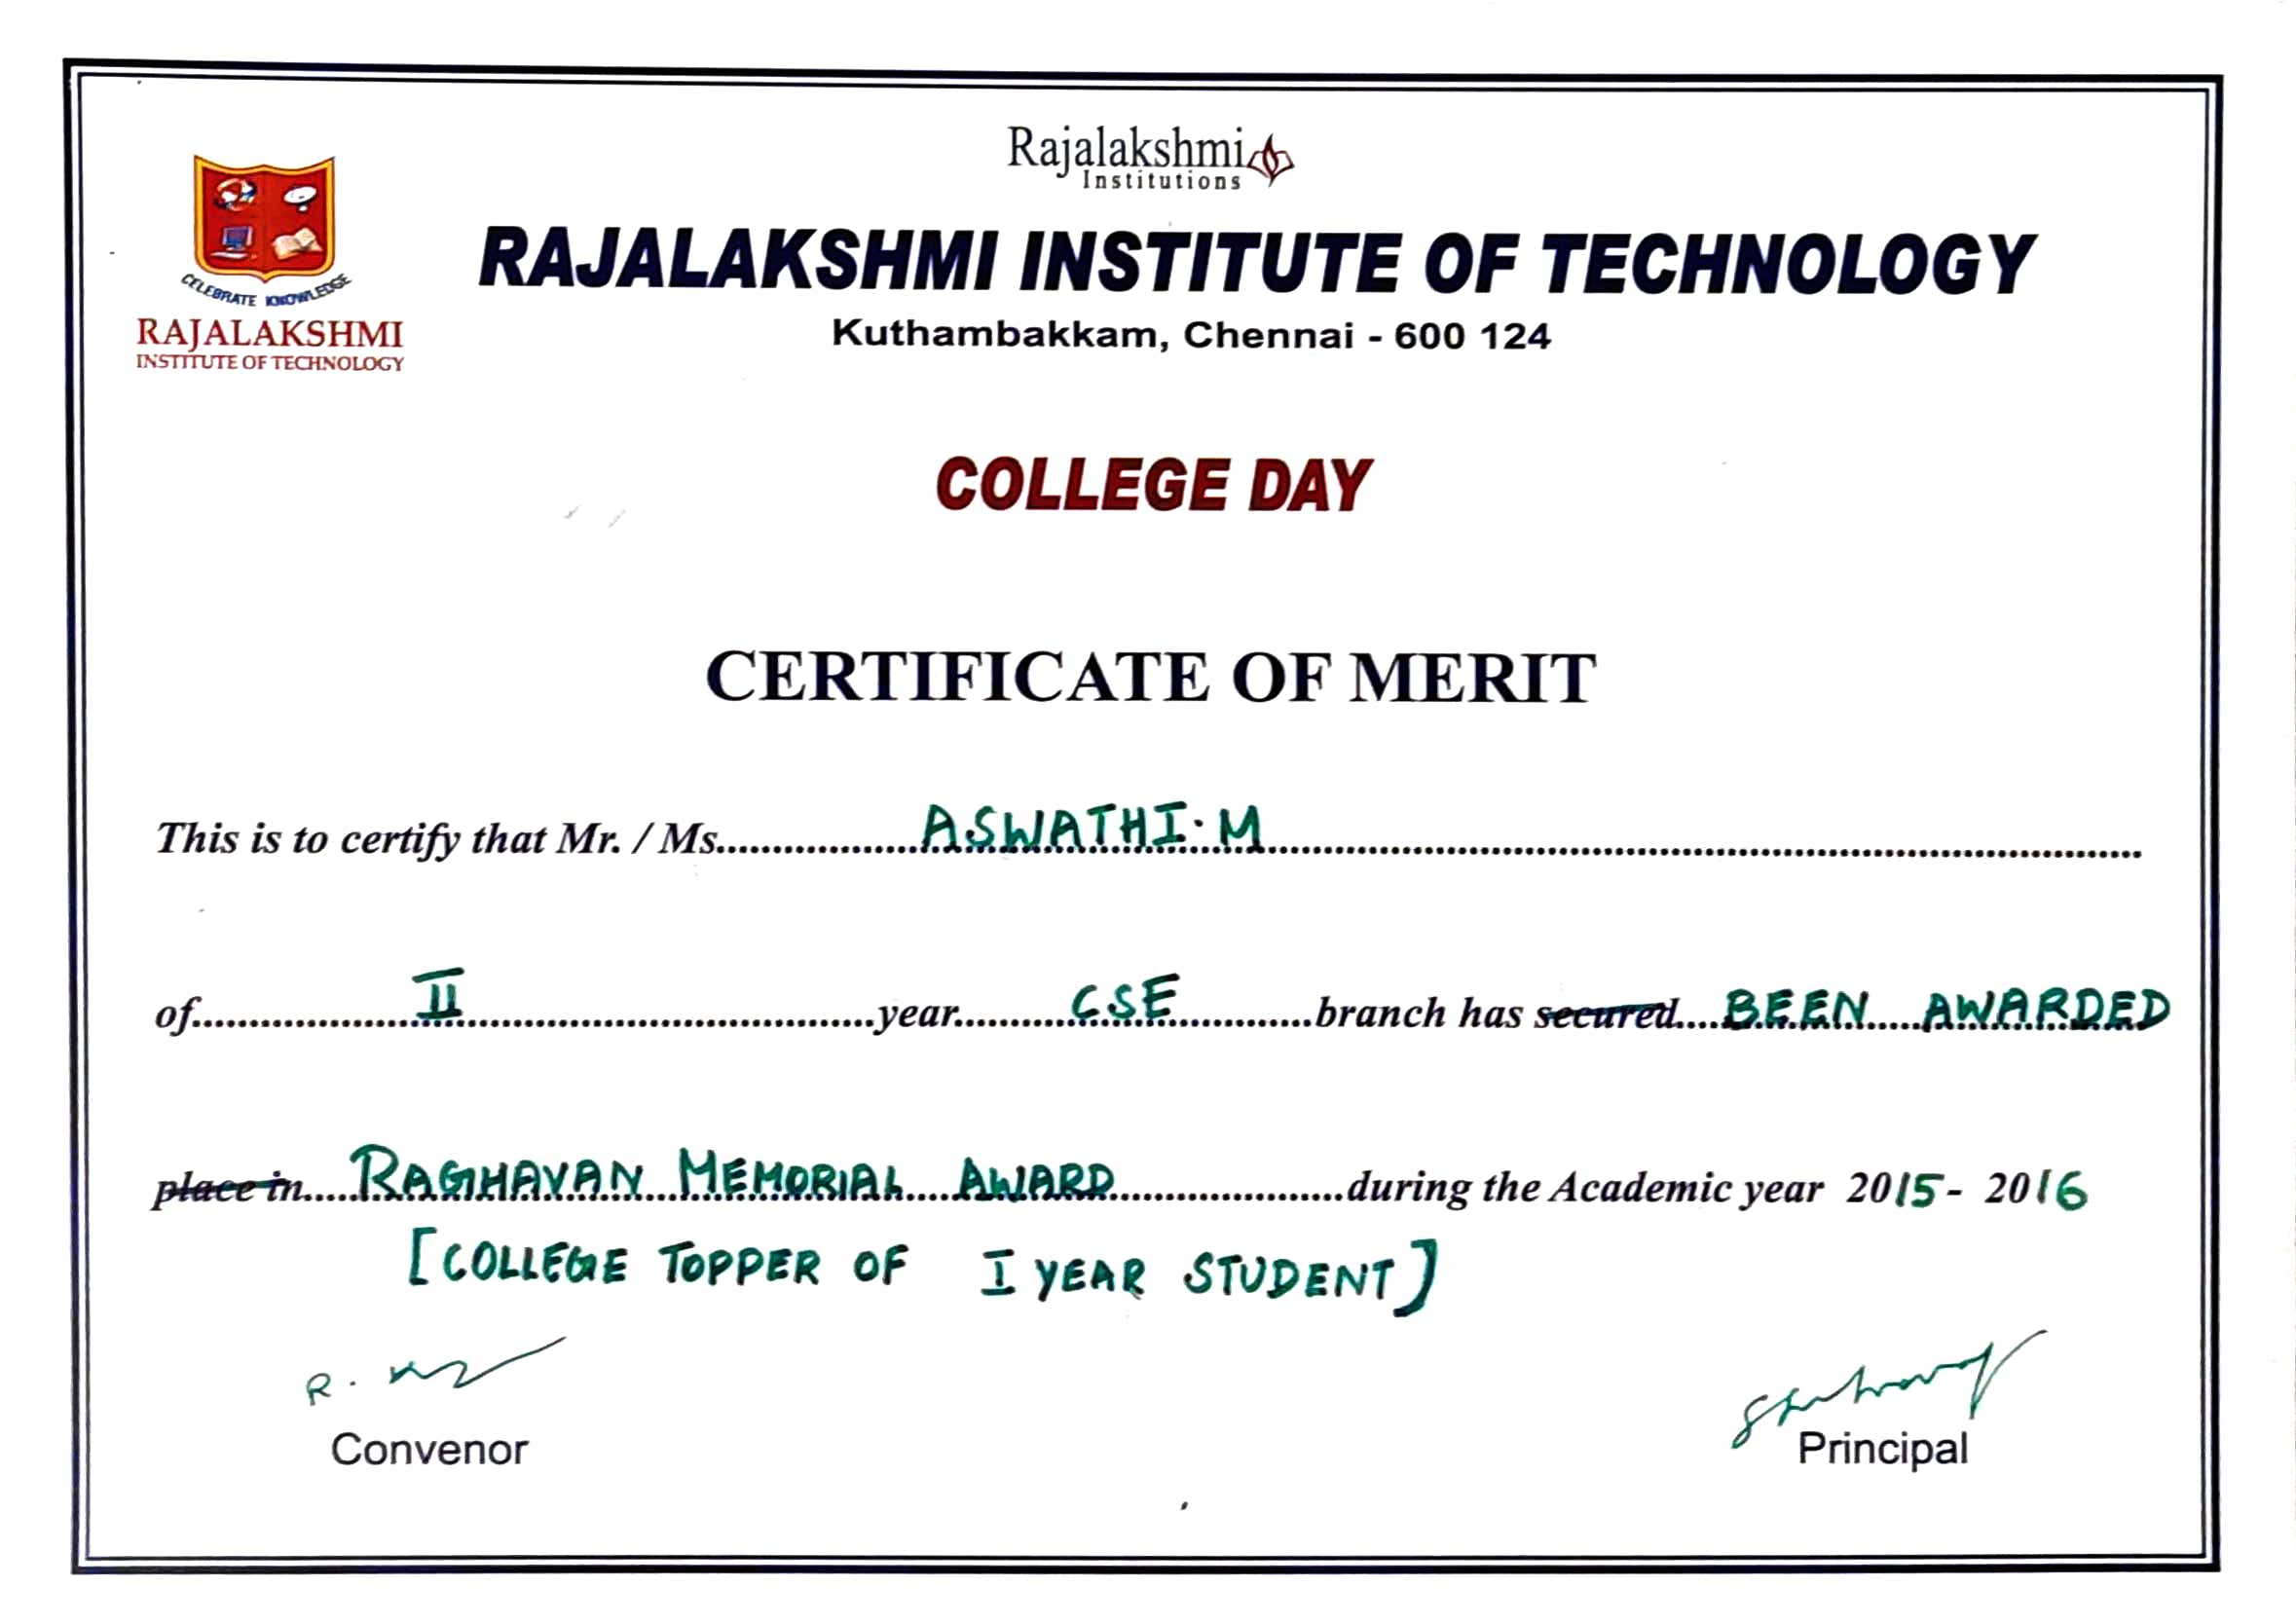 Rajalakshmi
Institutions
CELEBRATE KNOWLEDGE
RAJALAKSHMI
INSTITUTE OF TECHNOLOGY
RAJALAKSHMI INSTITUTE OF TECHNOLOGY
Kuthambakkam, Chennai - 600 124
COLLEGE DAY
CERTIFICATE OF MERIT
This is to certify that Mr. / Ms. ASWATHI. M
of II year CSE branch has secured BEEN AWARDED
place in RAGHAVAN MEMORIAL AWARD during the Academic year 2015 - 2016
[COLLEGE TOPPER OF I YEAR STUDENT]
R.
Convenor
Principal